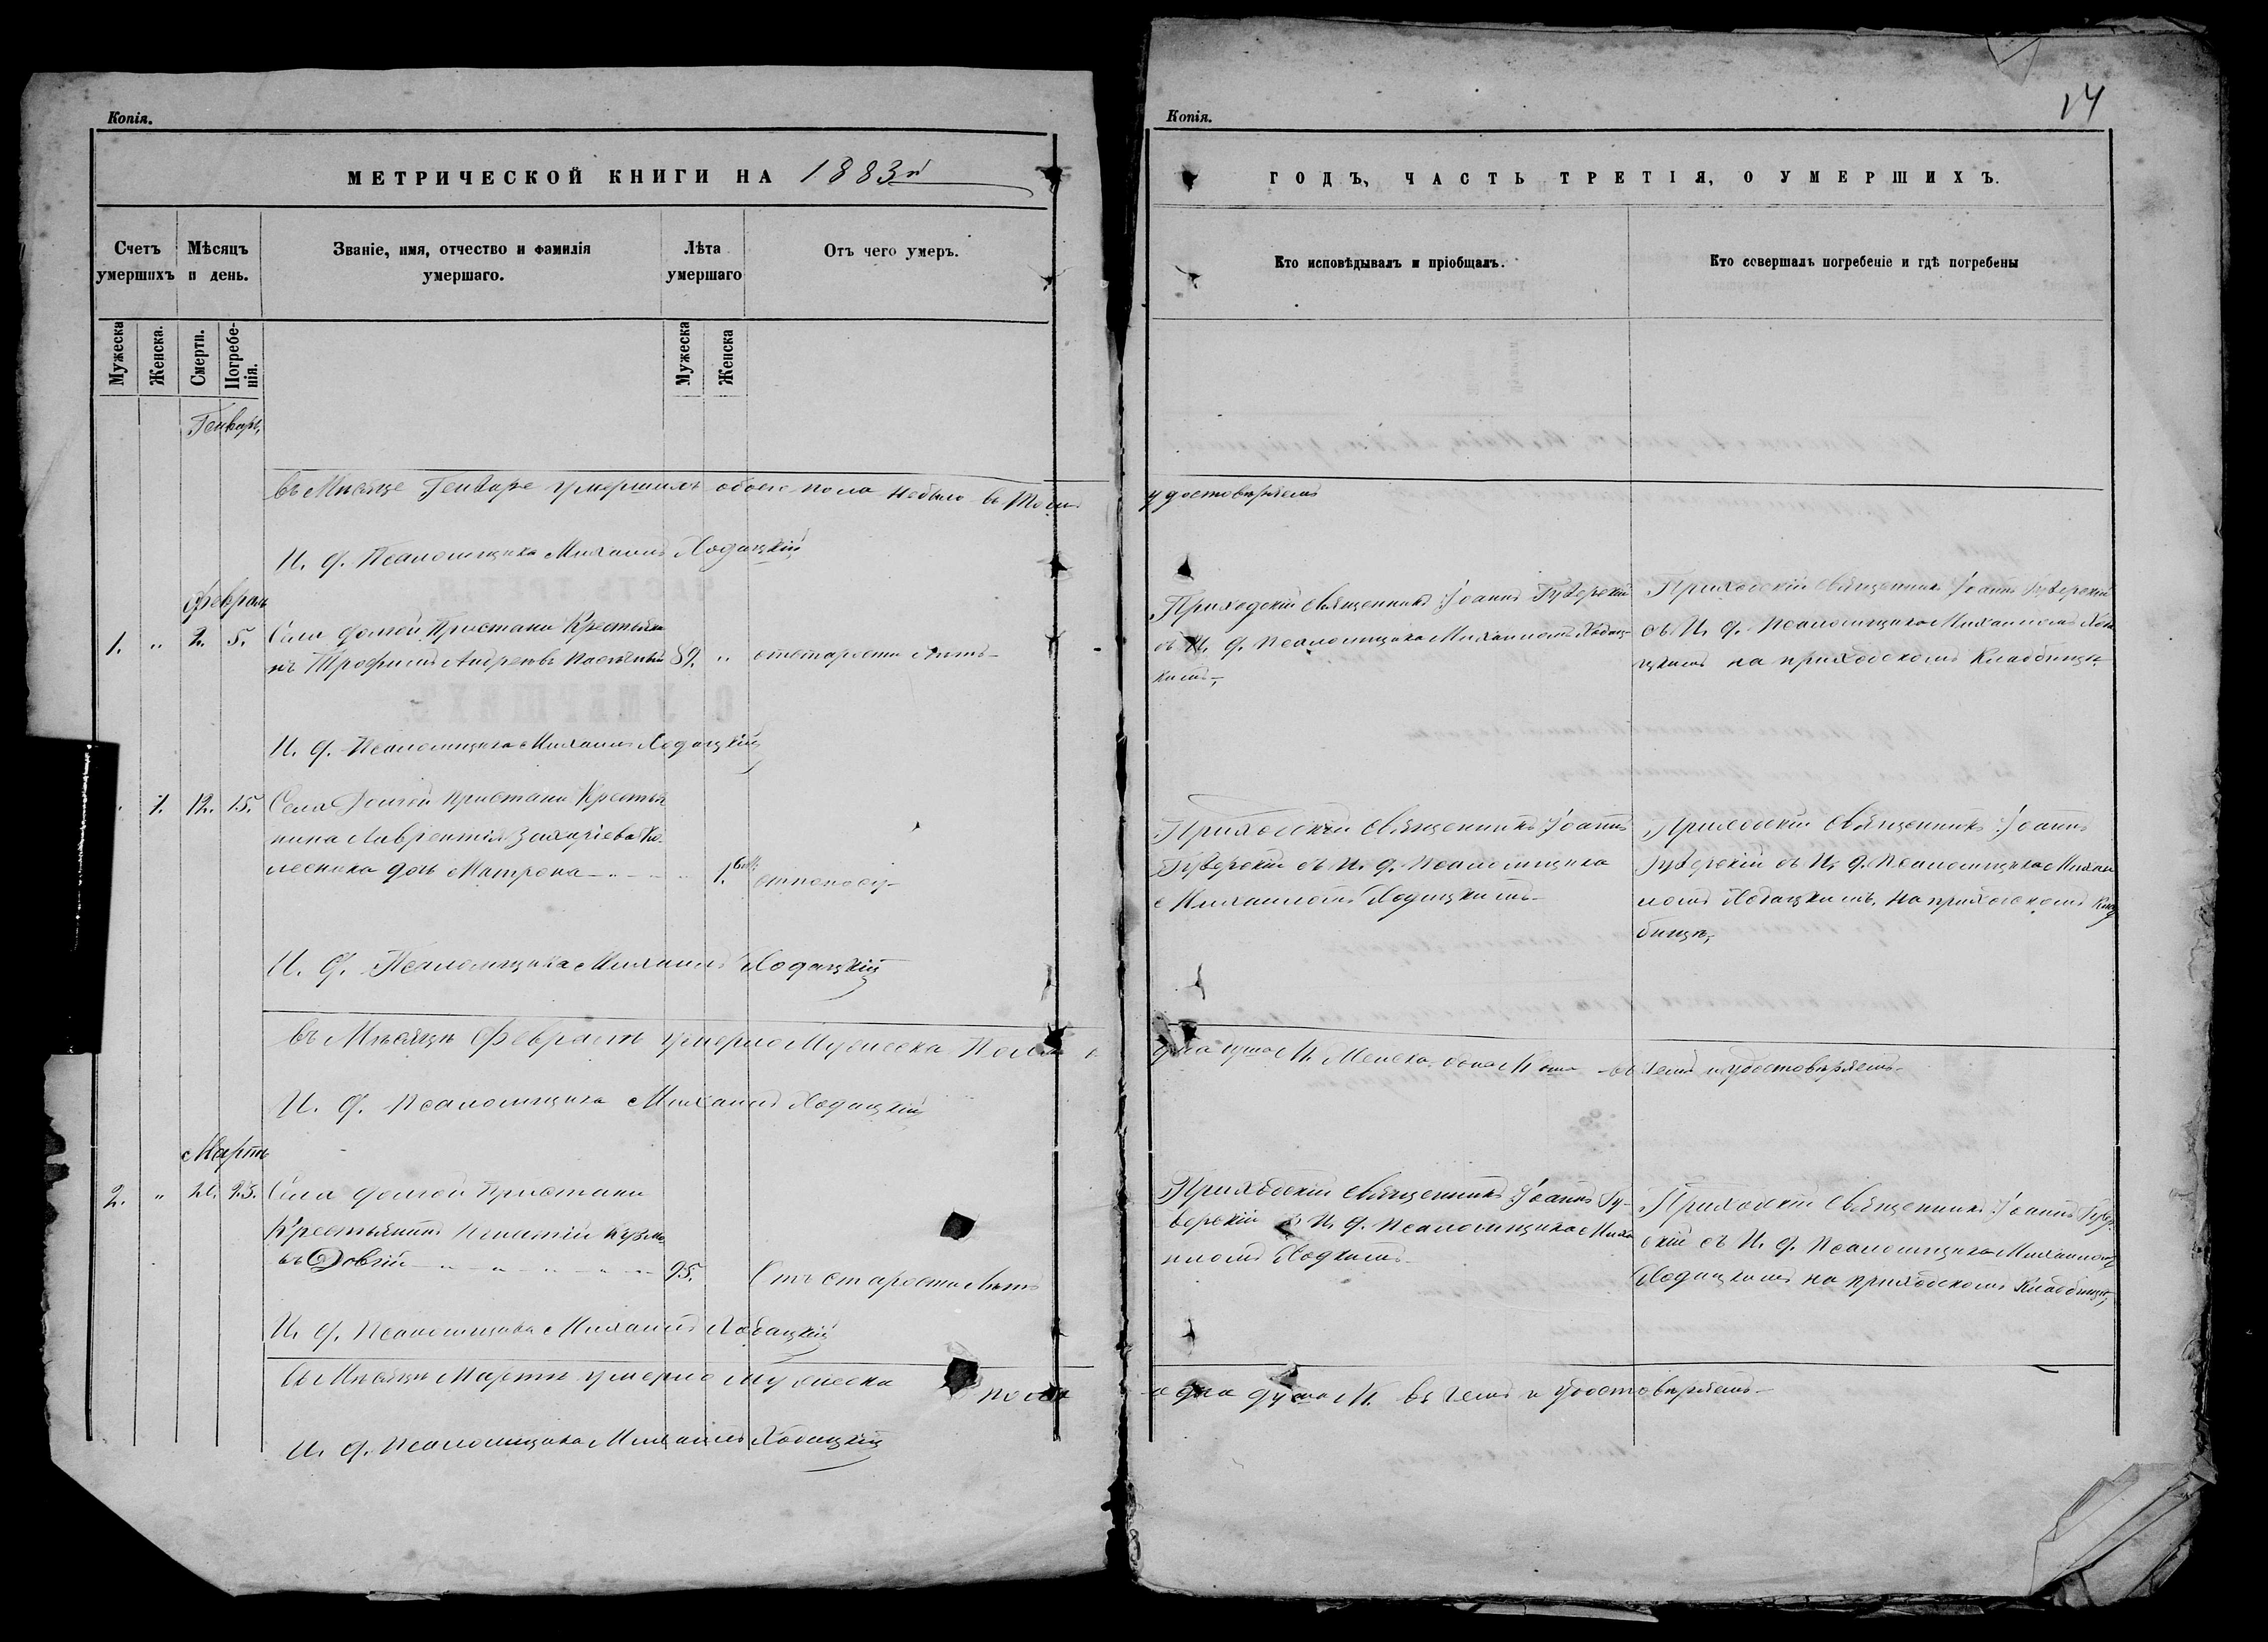 Копія.
МЕТРИЧЕСКОЙ КНИГИ НА 1883й
Счетъ умершихъ
Мѣсяцъ и день.
Званіе, имя, отчество и фамилія умершаго.
Лѣта умершаго
Отъ чего умеръ.
Мужеска
Женска.
Смерти.
Погребенія.
Мужеска
Женска
Генварь,
въ Мѣсяце Генваре умершихъ обоего пола небыло въ томъ
И. д. Псаломщика Михаилъ Ходацкій
Февраль
1. „ 2. 5. Села Долгой Пристани Крестьяни
нъ Трофимъ Андреевъ 89. „ отстарости лѣтъ
И. д. Псаломщика Михаилъ Ходацкій
1. 12. 15. Села Долгой Пристани Крестья
нина Лаврентія Захаріева Ко-
лесника дочь Матрона 1. отпоносу
И. д. Псаломщика Михаилъ Ходацкій
въ Мѣсяцѣ Февралѣ умерло Мужеска Пола
И. д. Псаломщика Михаилъ Ходацкій
Мартъ
2. „ 23. Села Долгой Пристани
Крестьянинъ Игнатій Кузми
въ Довгій 95. Отъ старости лѣтъ
И. д. Псаломщика Михаилъ Ходацкій
въ Мѣсяцѣ Мартѣ умерло Мужеска пола
И. д. Псаломщика Михаилъ Ходацкій
Копія.
14
ГОДЪ, ЧАСТЬ ТРЕТІЯ, О УМЕРШИХЪ.
Кто исповѣдывалъ и пріобщалъ.
Кто совершалъ погребеніе и гдѣ погребены
удостовѣряемъ
Приходскій Священникъ Іоаннъ Губерскій
съ И. д. Псаломщика Михаиломъ Ходац-
кимъ,
Приходскій Священникъ Іоаннъ Губерскій
съ И. д. Псаломщика Михаиломъ Хода
цкимъ на приходскомъ Кладбищѣ
Приходскій Священникъ Іоаннъ
Губерскій съ И. д. Псаломщика
Михаиломъ Ходацкимъ
Приходскій Священникъ Іоаннъ
Губерскій съ И. д. Псаломщика Михаи
ломъ Ходацкимъ, на приходскомъ Клад
бищѣ,
одна душа М. Женска одна въ чемъ и удостовѣряемъ
Приходскій Священникъ Іоаннъ Гу-
берскій съ И. д. Псаломщика Миха
иломъ Ходкимъ
Приходскій Священникъ Іоаннъ Губер
скій съ И. д. Псаломщика Михаиломъ
Ходацкимъ на приходскомъ Кладбищѣ,
одна душа М. въ чемъ и удостовѣряемъ